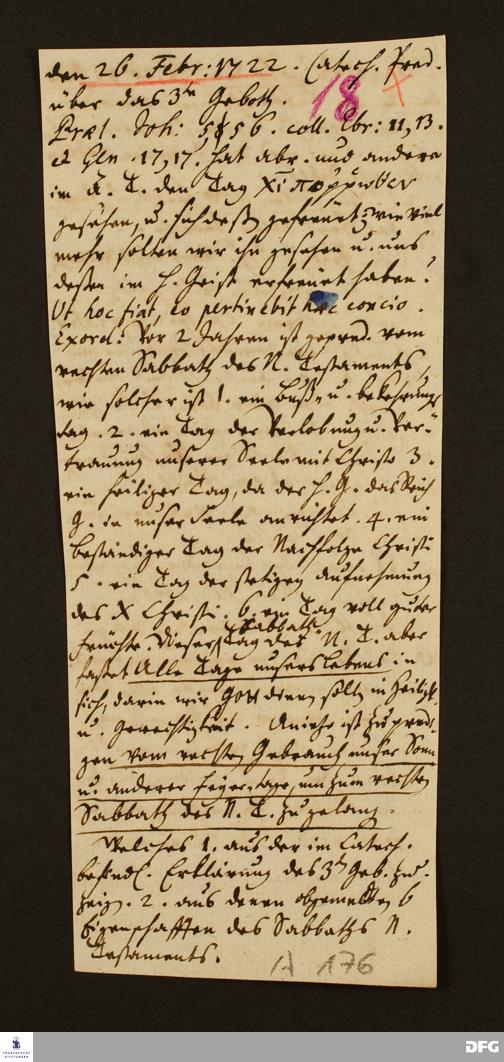 den 26. Febr: 1722. Catech. Pred.
über das 3te Geboth. 18
Præl. Joh: 8 56. coll. Ebr: 11, 13.
et Gen. 17, 17. hat abr. und andere
im A. T. den Tag Xi πορρωθεν
gesehen, u. sich deß gefreuet: wie viel
mehr solten wir ihn gesehen u. uns
deßen im H. Geist erfreuet haben?
Ut hoc fiat, eo pertinebit hæc concio.
Exord: Vor 2 Jahren ist gepred. vom
rechten Sabbath des N. Testaments,
wie solcher ist 1. ein Buß- u. bekehrungs
tag. 2. ein Tag der Verlobung u. Ver-
trauung unserer Seele mit Christo 3.
ein heiliger Tag, da der H. G. das Reich
G. in unser Seele anrichtet. 4. ein
beständiger Tag der Nachfolge Christi
5. ein Tag der stetigen Aufnehmung
des X Christi. 6. ein Tag voll guter
Früchte. Dieser Tag des Sabbaths N. T. aber
faßet alle Tage unsers Lebens in
sich, darin wir Gott dienen sollen in Heiligk.
u. Gerechtigkeit. Anietzo ist zu predi-
gen vom rechten Gebrauch unser Sonn
u. anderer Feyer-tage, um zum rechten
Sabbath des N. T. zu gelang.
Welches 1. aus der im Catech.
befindl. Erklärung des 3ten Geb. zu
zeigen. 2. aus denen obgemelten 6
Eigenschafften des Sabbaths N.
Testaments.
A 176
FRANCKESCHE STIFTUNGEN
DFG